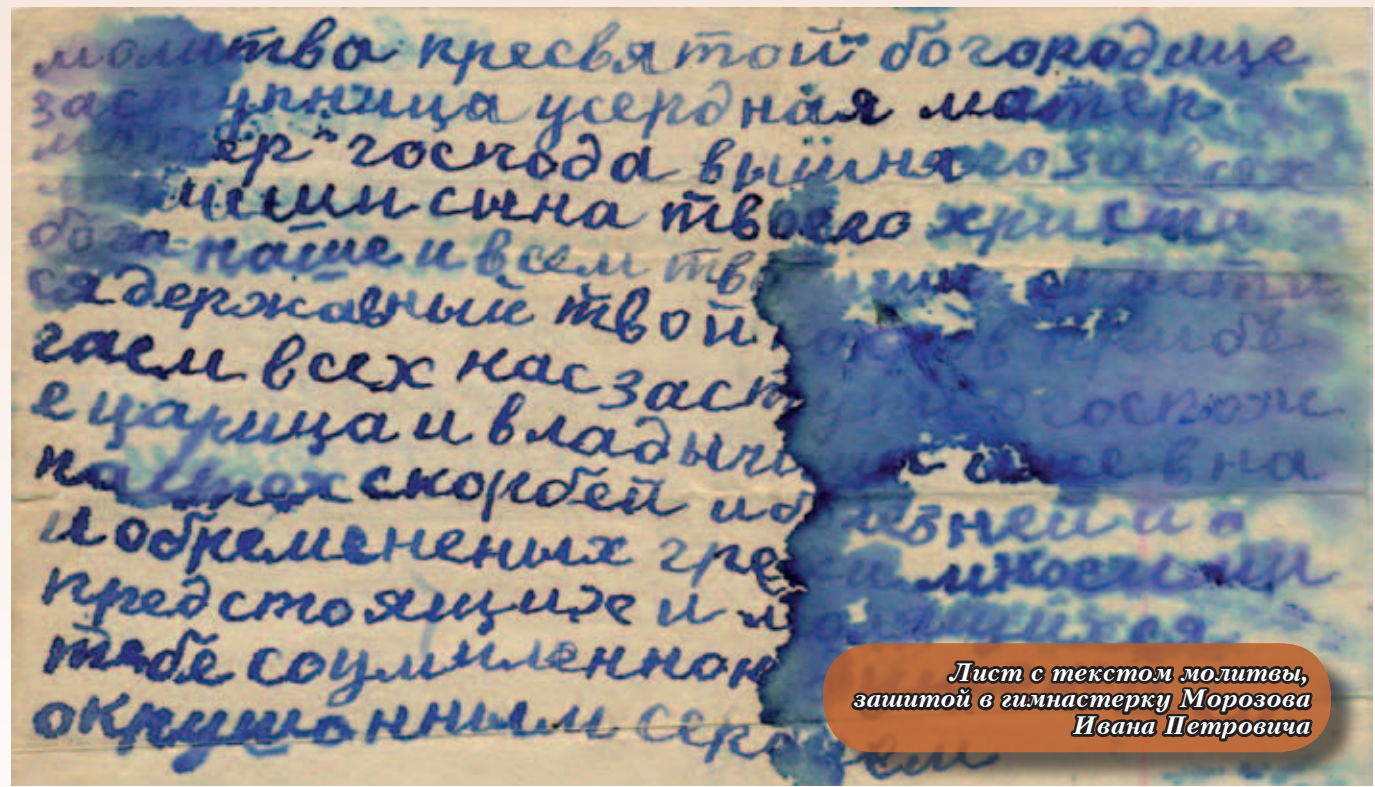 молитва пресвятой богородице
заступница усердная матер
матер господа вышняго за всех
молишеши сына твоего христа
бога наше и всем тв
ся державный твой покров прибе
гаем всех нас заступи о госпож
е царица и владычи иже в на
скорбей и болезней и о
и обремененых грехи многими
предстоящихе и молящихся
тебе соумиленной
окрушонным сердцем
Лист с текстом молитвы,
зашитой в гимнастерку Морозова
Ивана Петровича